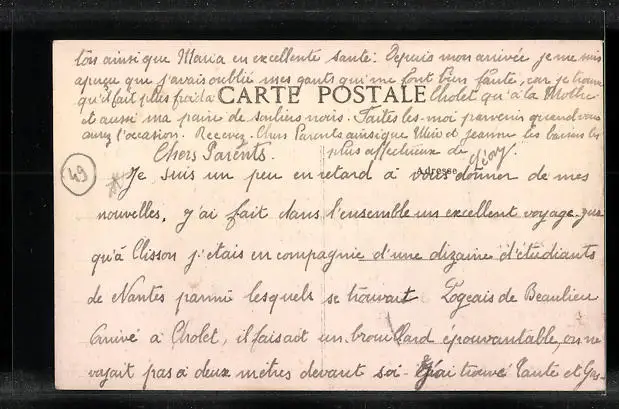 ton ainsi que Maria en excellente santé. Depuis mon arrivée je me suis
aperçu que j'avais oublié mes gants qui me font bien faute, car je trouve
qu'il fait plus froid à Cholet qu'à la Mothe
CARTE POSTALE
et aussi ma paire de souliers noirs. Faites-les-moi parvenir quand vous
aurez l'occasion. Recevez Chers Parents ainsi que Jeanne les baisers les
plus affectueux de Géory.
Adresse
49
Chers Parents.
Je suis un peu en retard à vous donner de mes
nouvelles, j'ai fait dans l'ensemble un excellent voyage, jus
qu'à Clisson j'étais en compagnie d'une dizaine d'étudiants
de Nantes parmi lesquels se trouvait Logeais de Beaulieu
Arrivé à Cholet, il faisait un brouillard épouvantable, on ne
voyait pas à deux mètres devant soi. J'ai trouvé Tante et Gas-